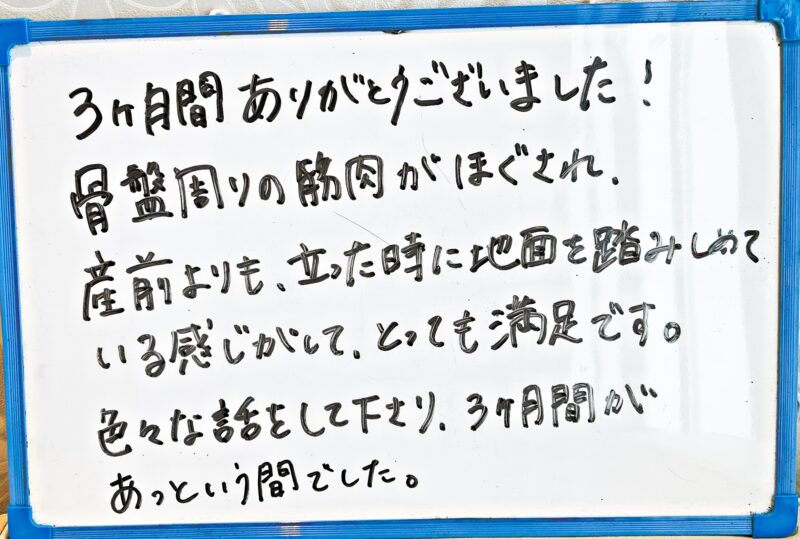 3ヶ月間ありがとうございました！
骨盤周りの筋肉がほぐされ、
産前よりも、立った時に地面を踏みしめて
いる感じがして、とっても満足です。
色々な話をして下さり、3ヶ月間が
あっという間でした。